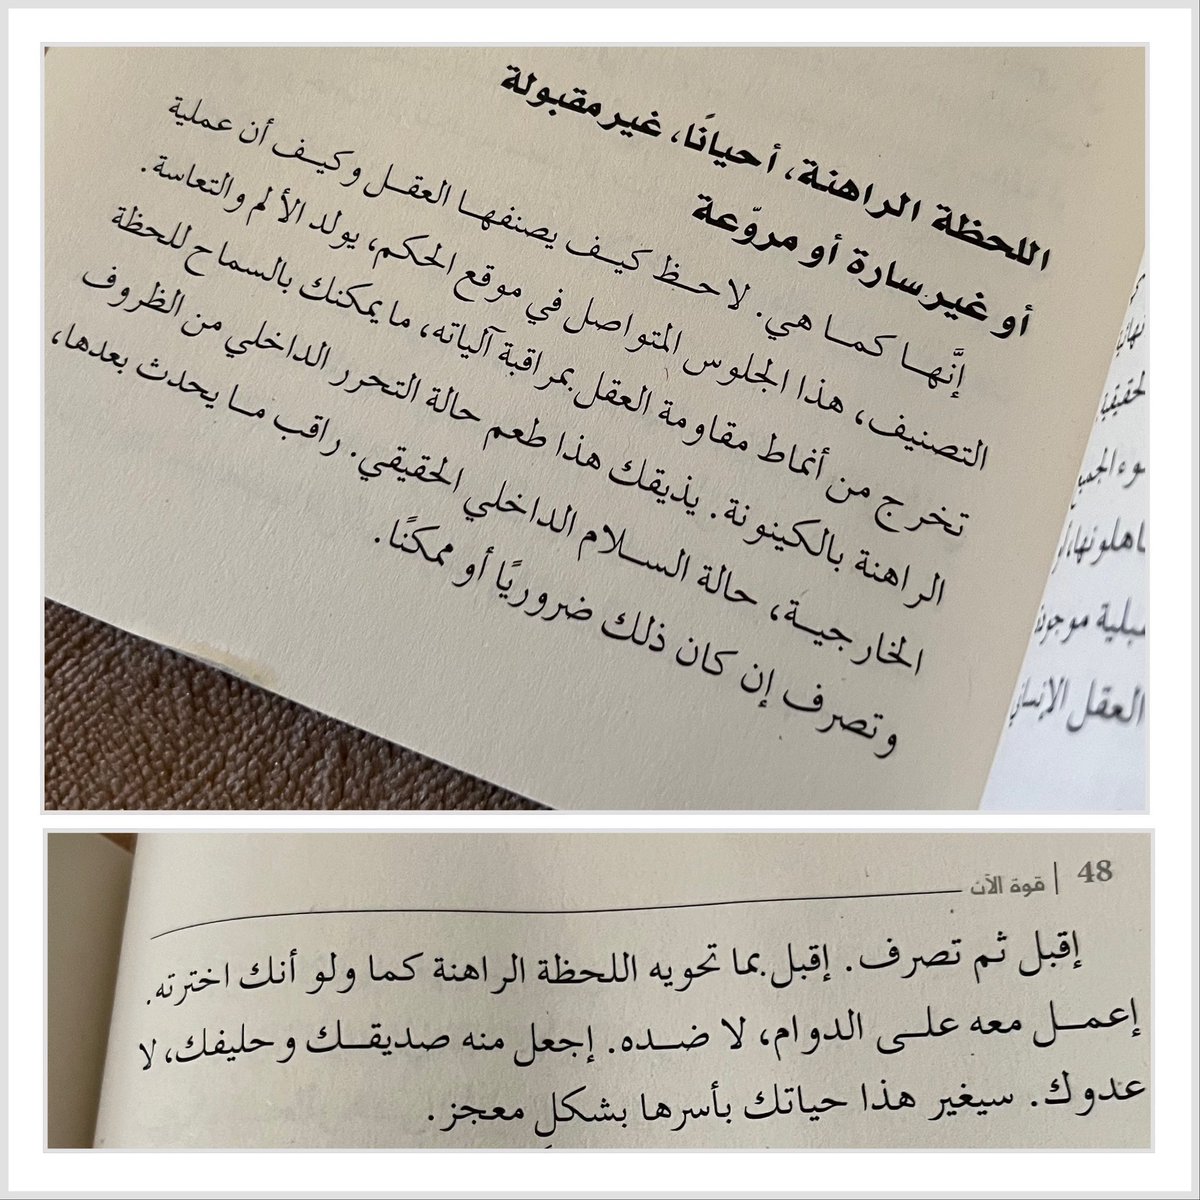 اللحظة الراهنة، أحيانًا، غير مقبولة
أو غير سارة أو مروّعة
إنَّهـا كمـا هي. لاحـظ كيـف يصنفهـا العقـل وكيـف أن عملية
التصنيف، هذا الجلوس المتواصل في موقع الحكم، يولد الألم والتعاسة.
تخرج من أنماط مقاومة العقل بمراقبة آلياته، ما يمكنك بالسماح للحظة
الراهنة بالكينونة. يذيقك هذا طعم حالة التحرر الداخلي من الظروف
الخارجيـة، حالة السـلام الداخلي الحقيقي. راقب مـا يحدث بعدها،
وتصرف إن كان ذلك ضروريًا أو ممكنًا.
العقل الإنساني
48 | قوة الآن
إقبل ثم تصرف. إقبل بما تحويه اللحظة الراهنة كما ولو أنك اخترته.
إعمـل معه علـى الدوام، لا ضـده. إجعل منه صديقـك وحليفك، لا
عدوك. سيغير هذا حياتك بأسرها بشكل معجز.